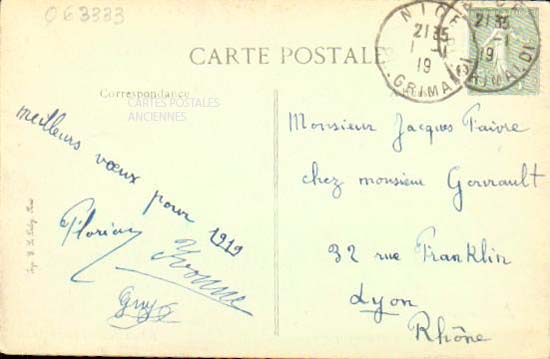 063333
CARTE POSTALE
NICE
21 35
1 -1
19
GRIMALDI
Correspondance
CARTES POSTALES
ANCIENNES
meilleurs vœux pour 1919
Florian
Yvonne
Guy
Monsieur Jacques Faivre
chez monsieur Gouvrault
32 rue Franklin
Lyon
Rhône